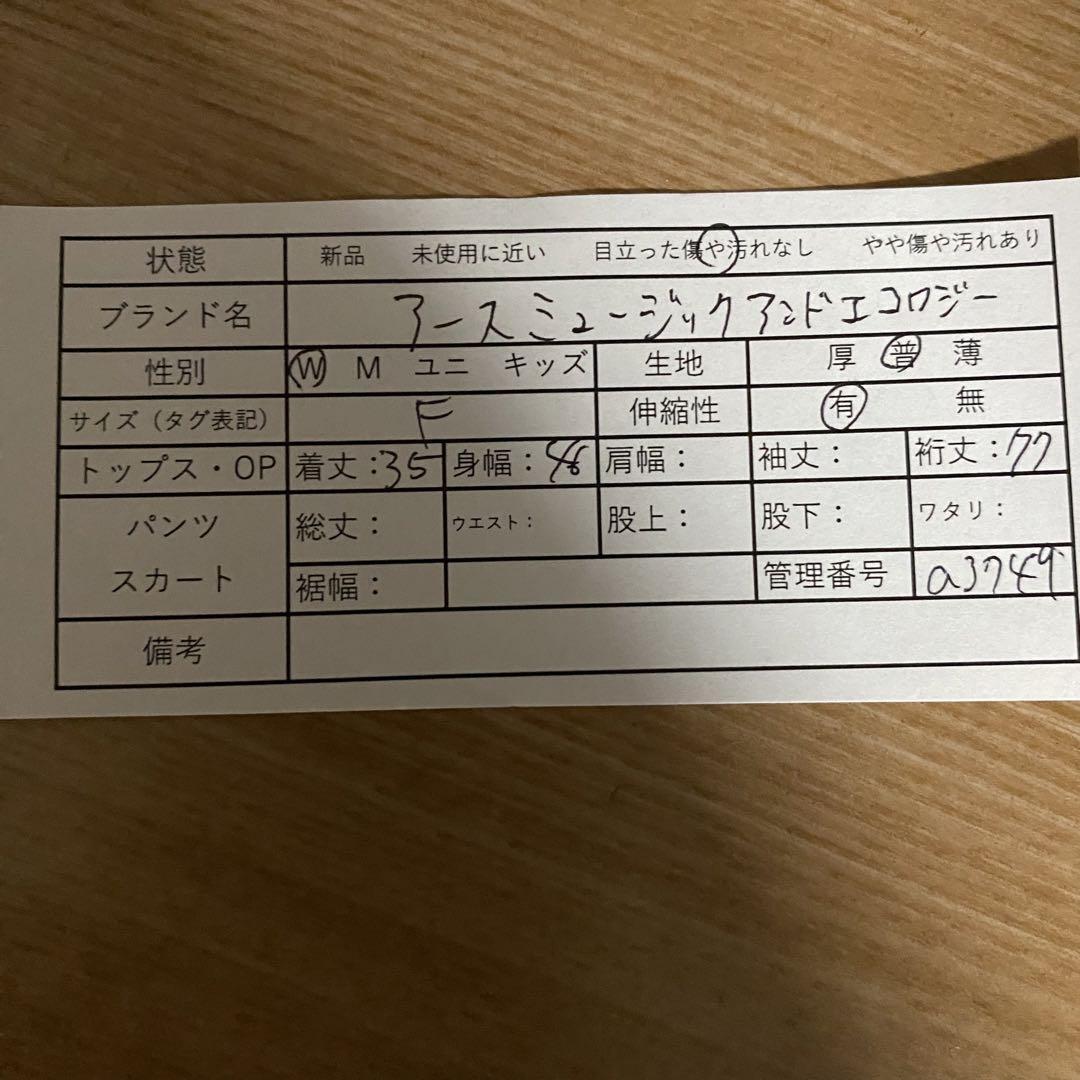 状態 新品 未使用に近い 目立った傷や汚れなし やや傷や汚れあり
ブランド名 アースミュージックアンドエコロジー
性別 W M ユニ キッズ 生地 厚 普 薄
サイズ（タグ表記） F 伸縮性 有 無
トップス・OP 着丈：35 身幅： 肩幅： 袖丈： 裄丈：77
パンツ 総丈： ウエスト： 股上： 股下： ワタリ：
スカート 裾幅： 管理番号 a3749
備考